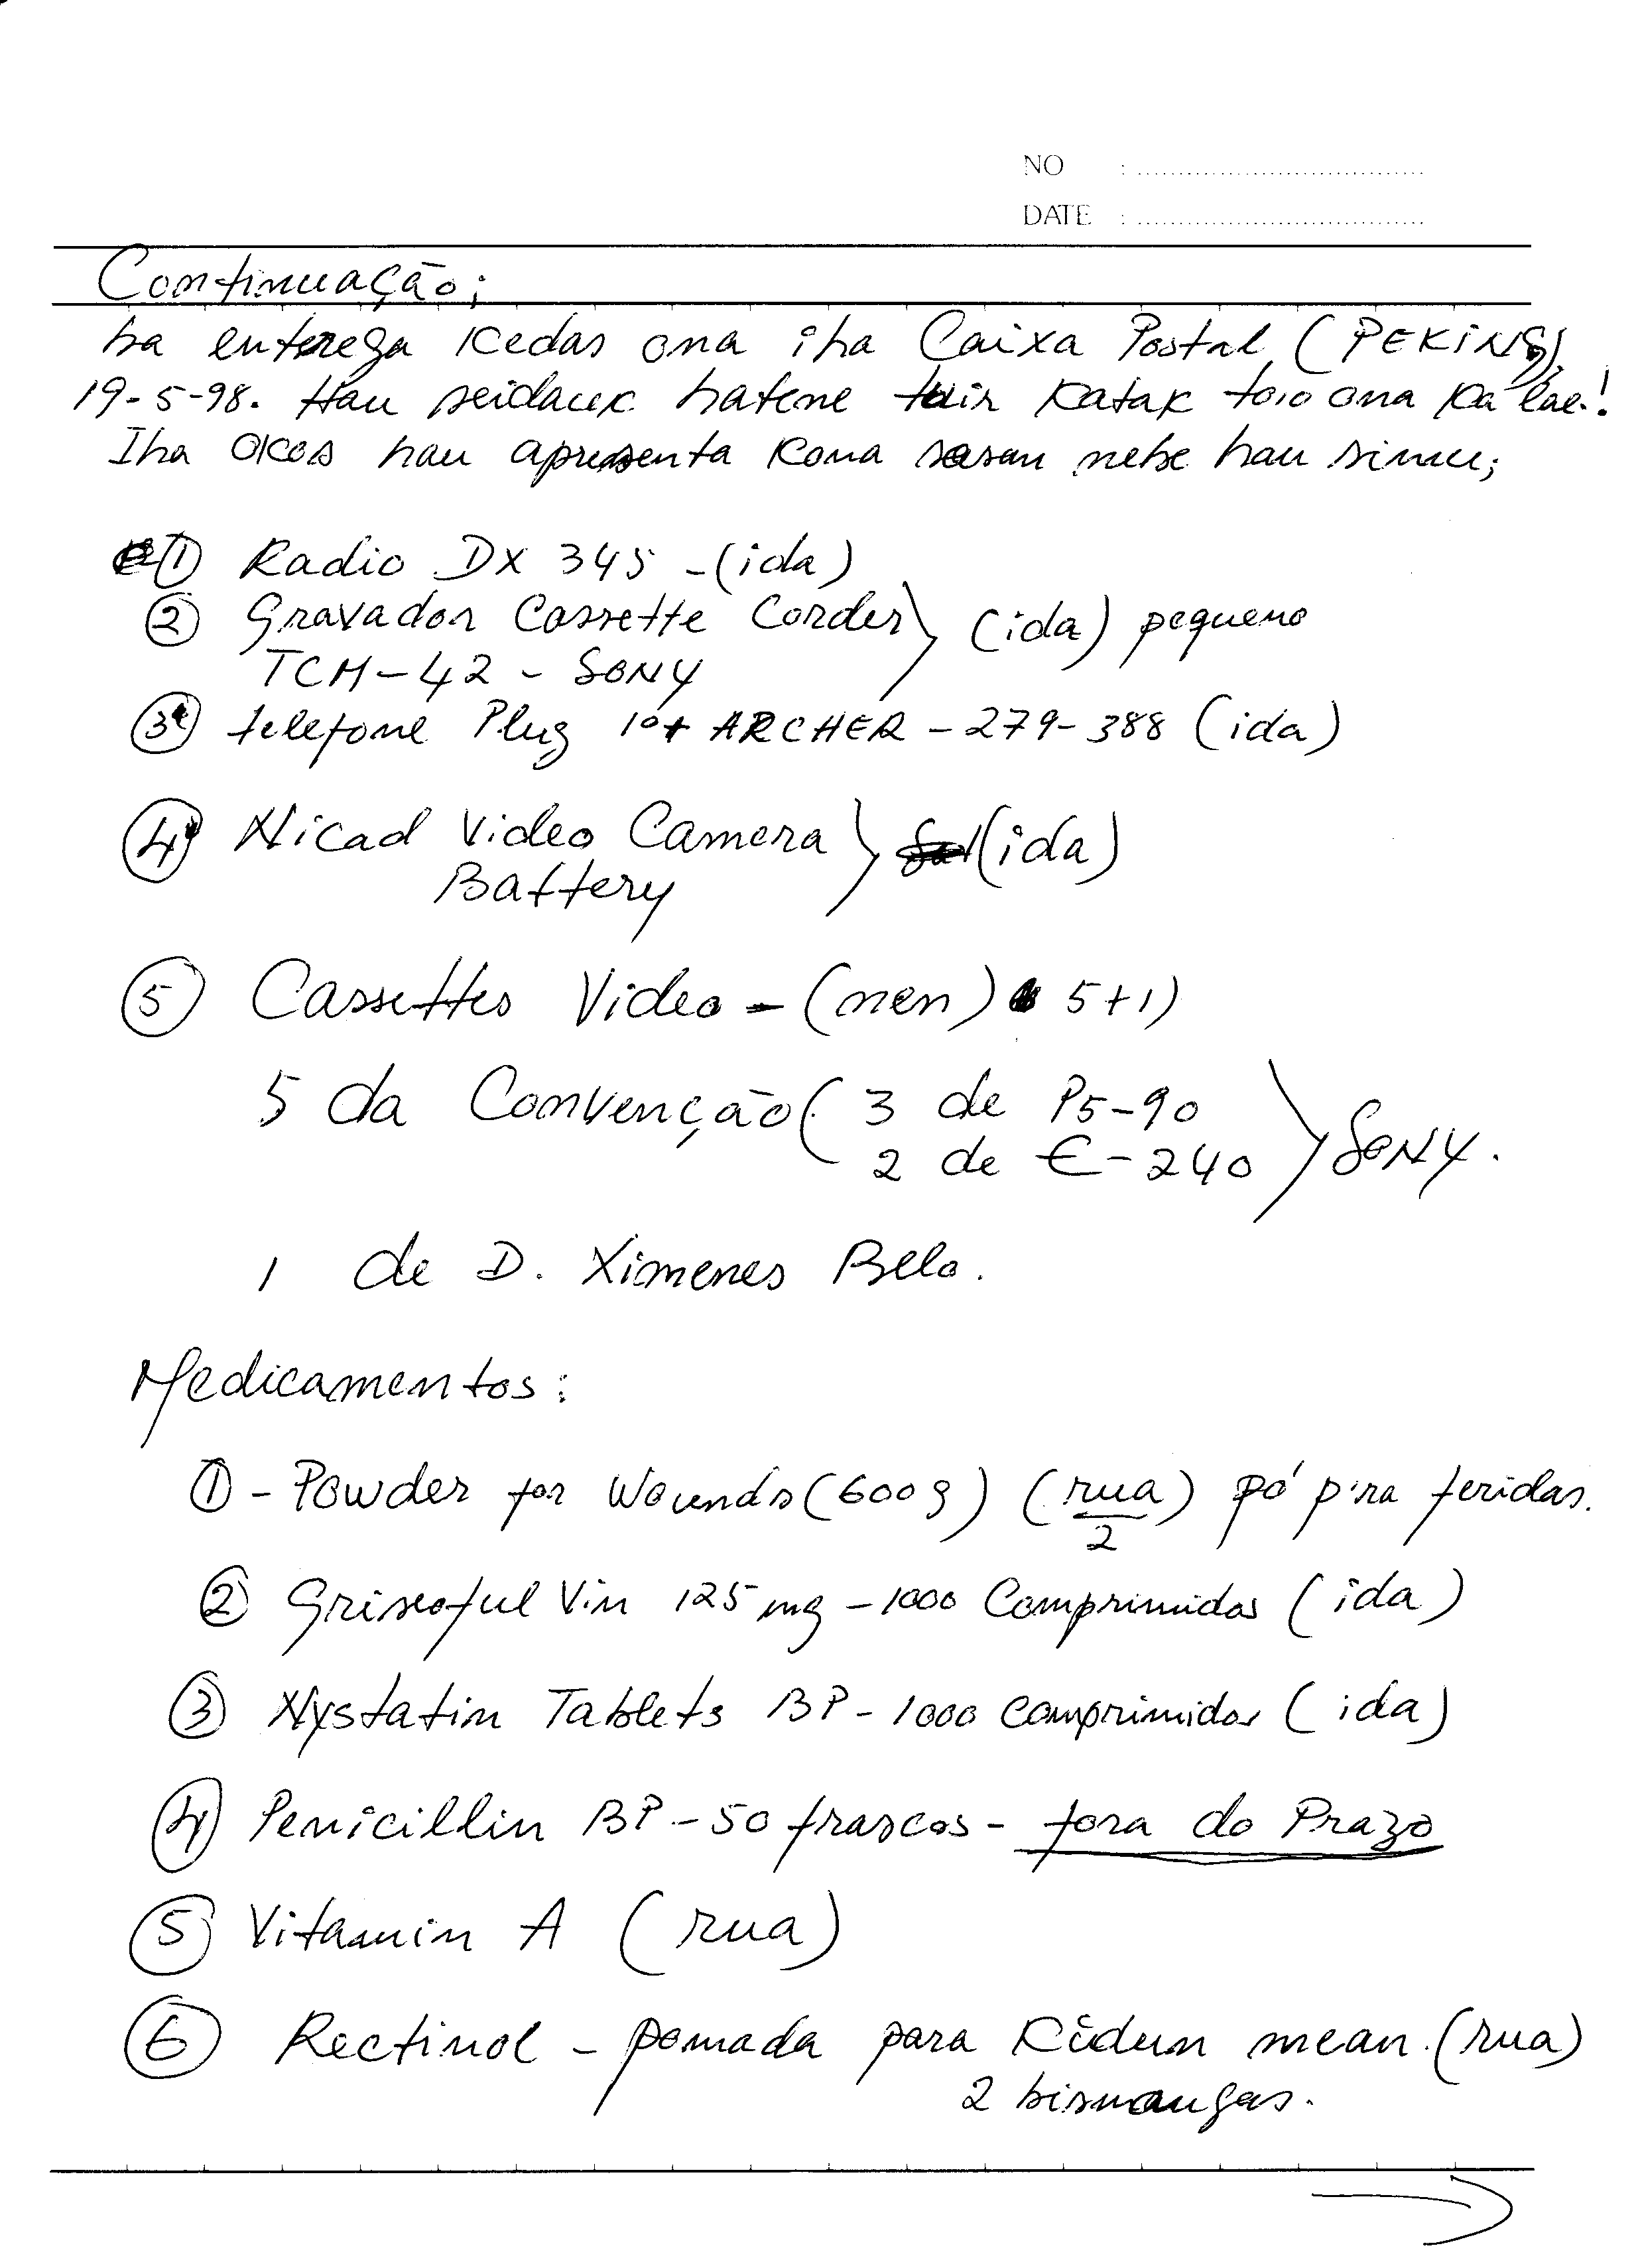 NO : ....................................
DATE : ....................................
Continuação;
ba enterega kedas ona iha Caixa Postal (PEKING),
19-5-98. Hau seidauk hatene tuir katak to'o ona ka lae.!
Iha okos hau apresenta kona sasan nebe hau simu;
① Radio DX 345 - (ida)
② Gravador Cassette Corder (ida) pequeno
TCM-42 - SONY
③ telefone Plug ARCHER - 279-388 (ida)
④ Nicad Video Camera (ida)
Battery
⑤ Cassettes Video - (nen) 5+1)
5 da Convenção ( 3 de P5-90
2 de E-240 SONY.
1 de D. Ximenes Belo.
Medicamentos:
① - Powder for Wounds (600g) (rua) pó p'ra feridas.
2
② Griseoful Vin 125 mg - 1000 Comprimidos (ida)
③ Nystatin Tablets BP - 1000 comprimidos (ida)
④ Penicillin BP - 50 frascos - fora do Prazo
⑤ Vitamin A (rua)
⑥ Rectinol - pomada para Kidun mean. (rua)
2 bisnangas.